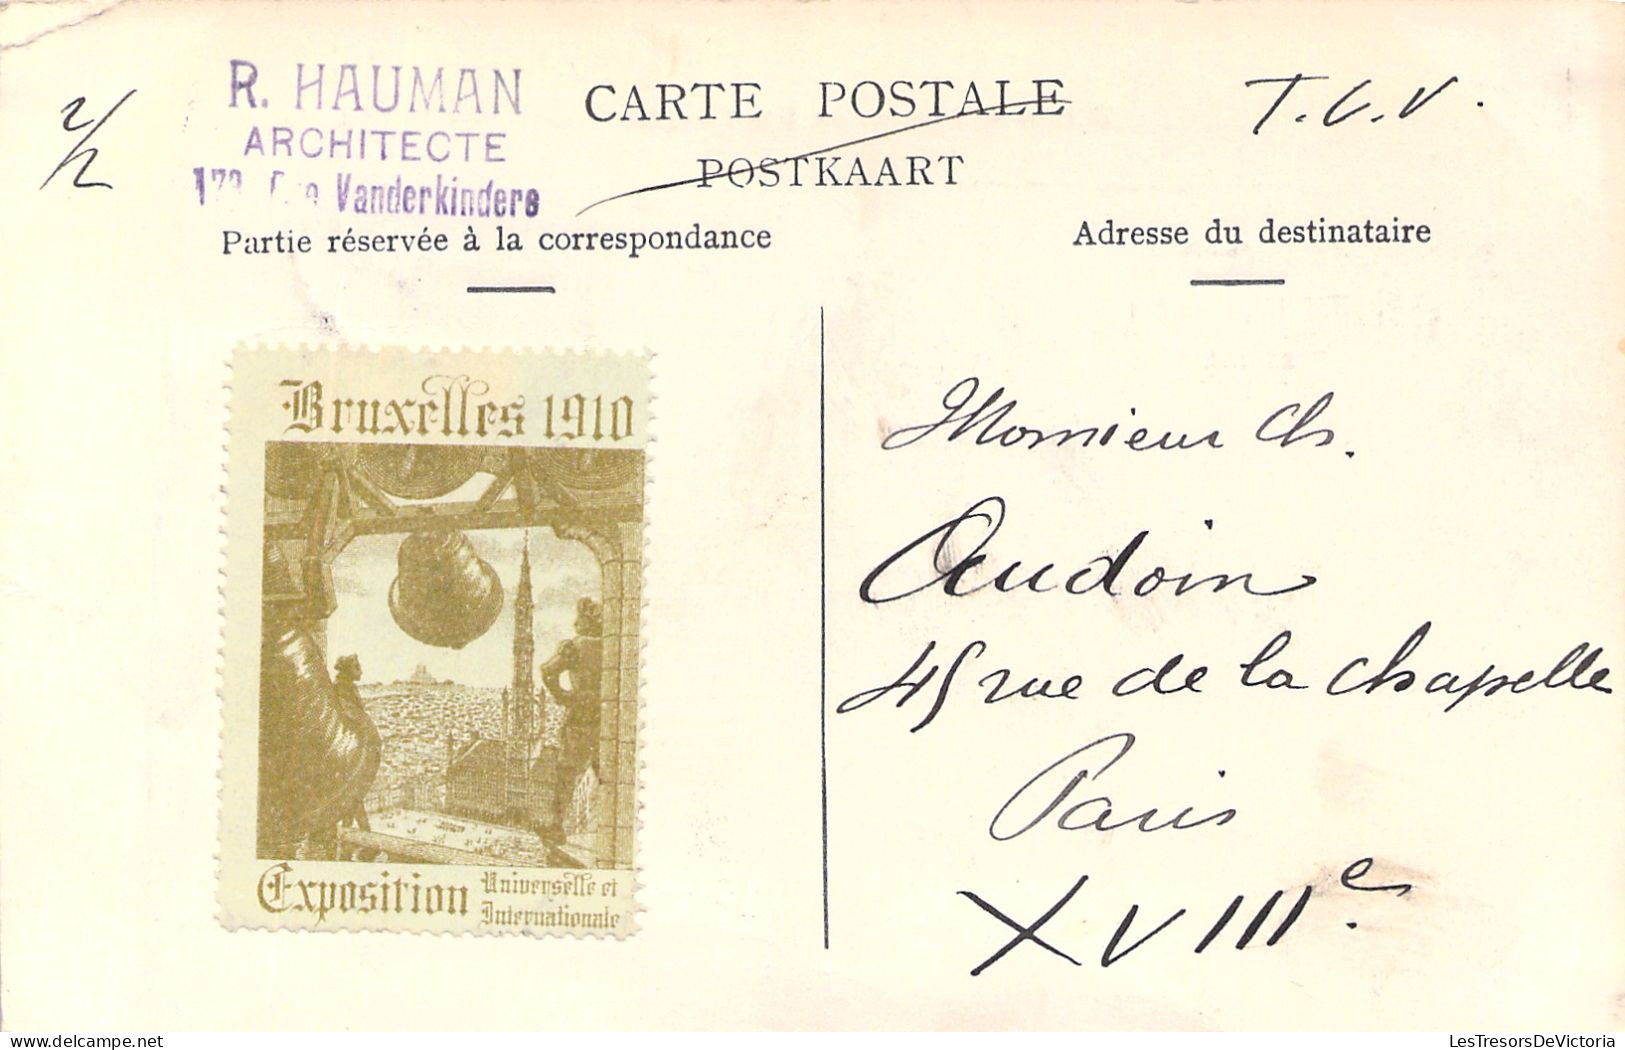 2/2
R. HAUMAN
ARCHITECTE
Vanderkindere
CARTE POSTALE
POSTKAART
T.C.V.
Partie réservée à la correspondance
Adresse du destinataire
Bruxelles 1910
Exposition Universelle et
Internationale
Monsieur Ch.
Audoin
45 rue de la Chapelle
Paris
XVIIIe.
LesTresorsDeVictoria